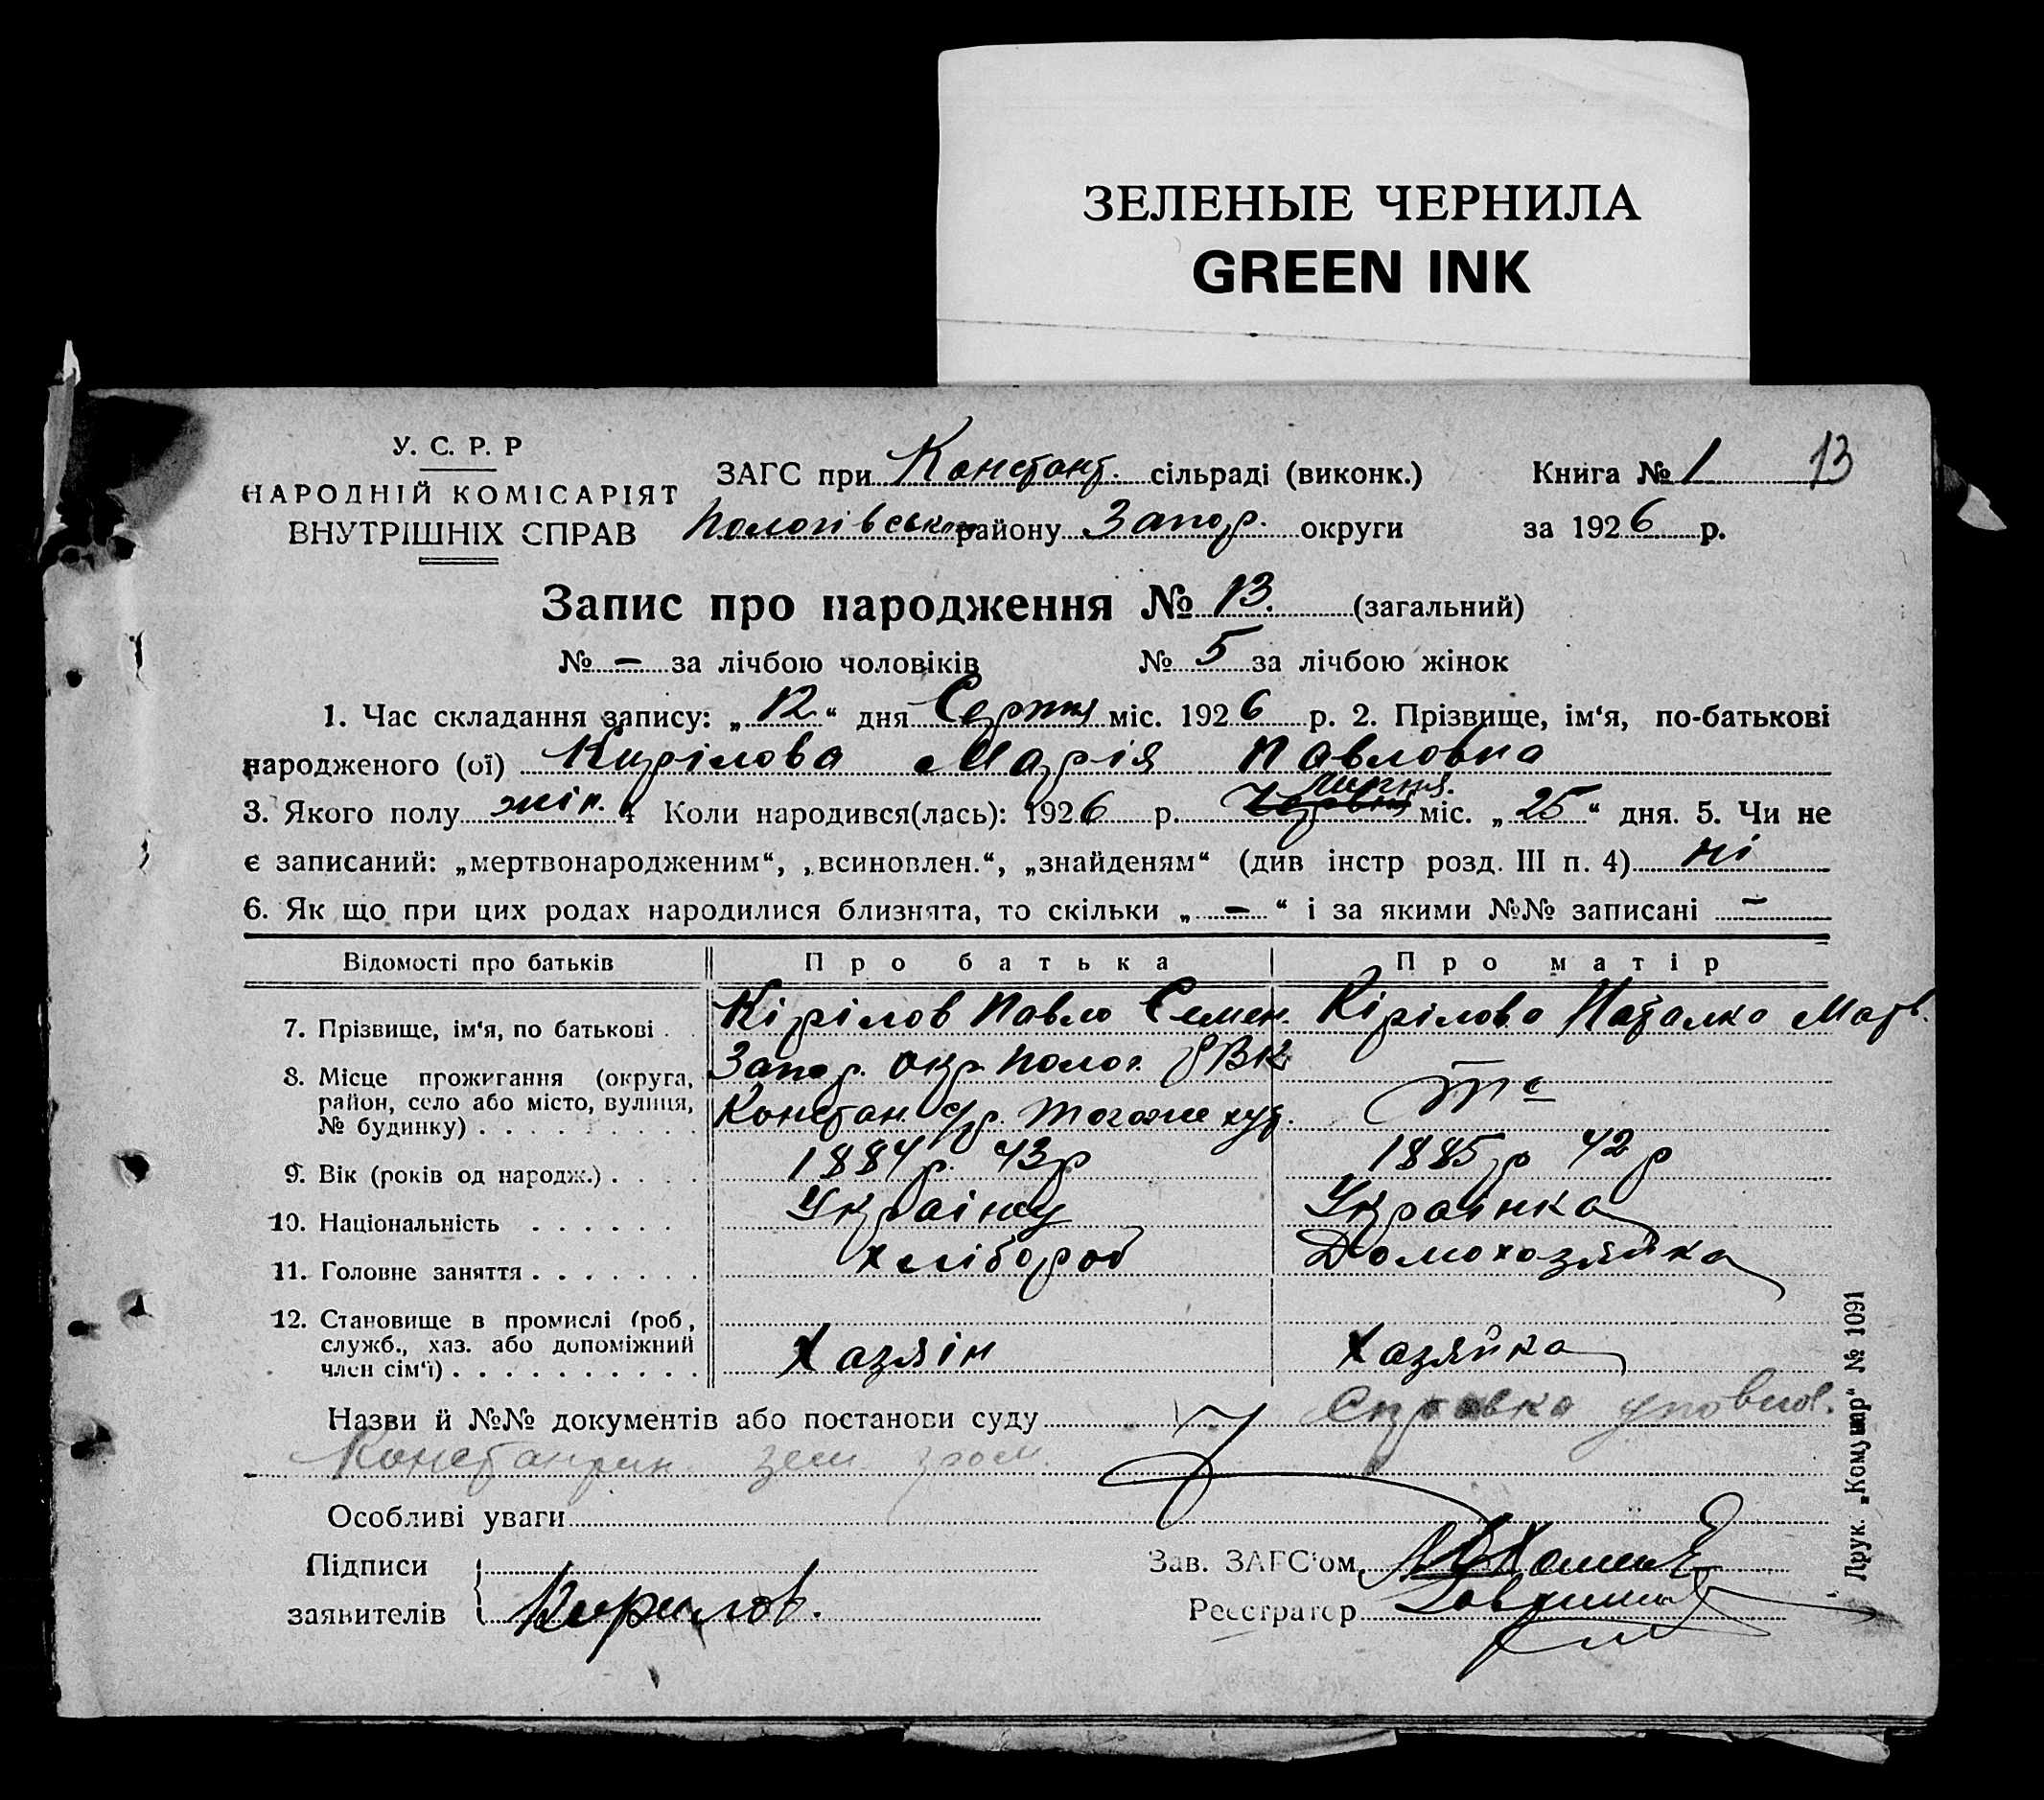 ЗЕЛЕНЫЕ ЧЕРНИЛА
GREEN INK
У. С. Р. Р
НАРОДНІЙ КОМІСАРІЯТ
ВНУТРІШНІХ СПРАВ
ЗАГС при Констант. сільраді (виконк.)
Книга № 1 13
Пологівськом району Запор. округи
за 1926 р.
Запис про народження № 13. (загальний)
№ – за лічбою чоловіків № 5 за лічбою жінок
1. Час складання запису: „12“ дня Серпня міс. 1926 р. 2. Прізвище, ім‘я, по-батькові
народженого (ої) Кирілова Марія Павловна
3. Якого полу жін. 4 Коли народився(лась): 1926 р. Липня. міс. „25“ дня. 5. Чи не
є записаний: „мертвонародженим“, „всиновлен.“, „знайденям“ (див інстр розд. III п. 4) ні
6. Як що при цих родах народилися близнята, то скільки „–“ і за якими №№ записані –
Відомості про батьків Про батька Про матір
7. Прізвище, ім‘я, по батькові Кірілов Павло Семен. Кірілова Наталка Матв.
8. Місце прожигання (округа, район, село або місто, вулиця, № будинку) Запор. окр. Полог. РВК
Констан. с/р. хут.
9. Вік (років од народж.) 1884 р. 43 р 1885 р 42 р
10. Національність Українец Українка
11. Головне заняття Хлібороб Домохозяйка
12. Становище в промислі (роб, служб., хаз. або допоміжний член сім‘ї) Хазяін Хазяйка
Назви й №№ документів або постанови суду Справка уповнов.
Констатрин. зем. гром.
Особливі уваги
Підписи
заявителів Кирилов.
Зав. ЗАГС‘ом
Реєстратор
Друк. „Комунар“ № 1091